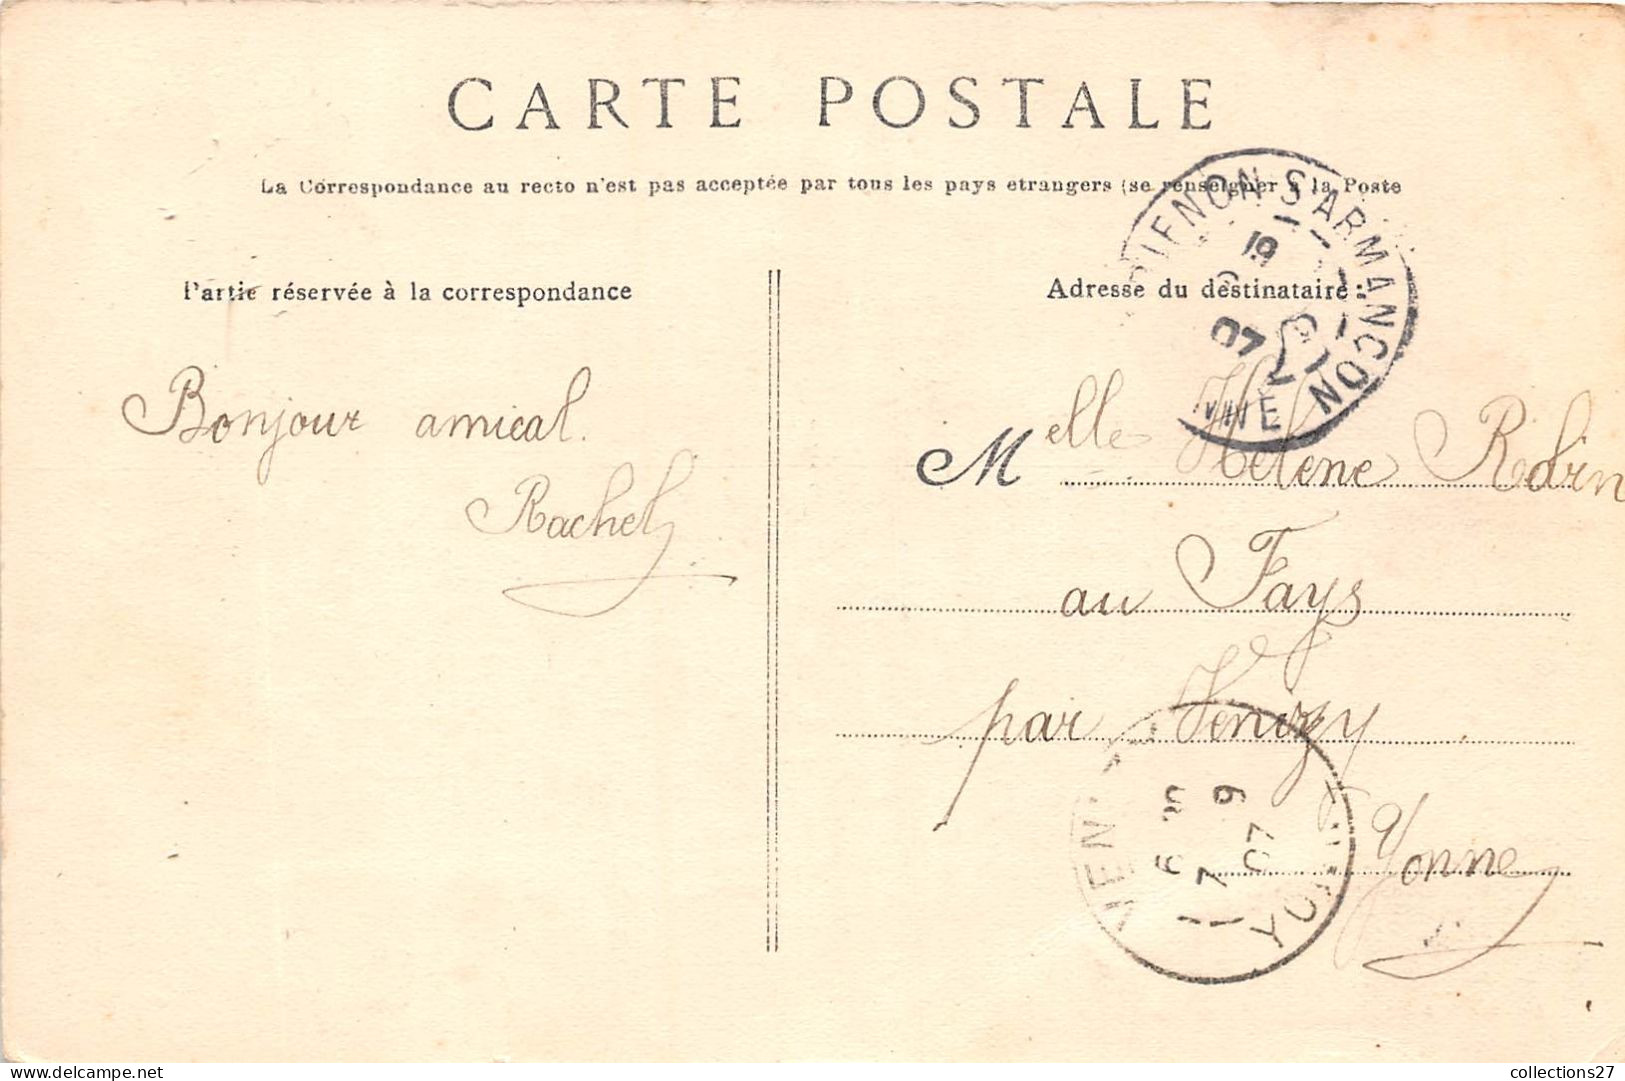 CARTE POSTALE
La Correspondance au recto n'est pas acceptée par tous les pays etrangers (se renseigner à la Poste
Partie réservée à la correspondance
Bonjour amical.
Rachel
Adresse du destinataire :
Melle Hélène Robin
au Fays
par Venizy
Yonne
BRIENON S' ARMANCON
19
07
YONNE
VEN
6
7 9
07
YO
collections27